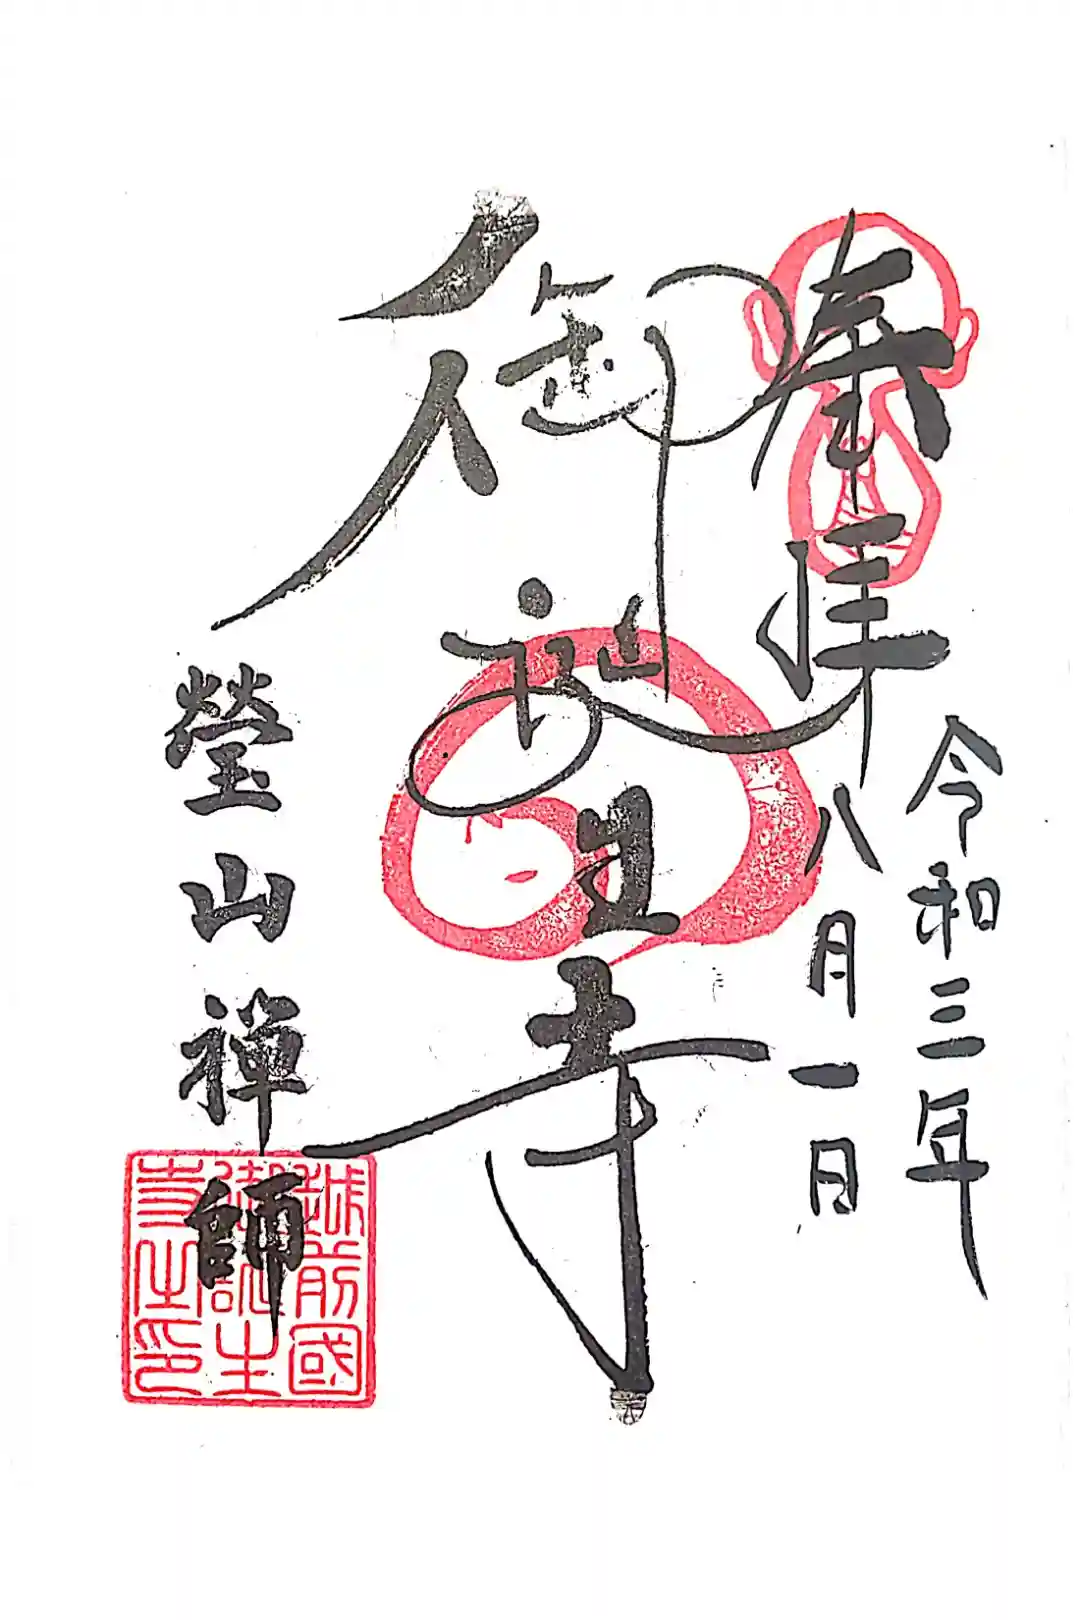 奉拝
令和三年
八月一日
御誕生寺
瑩山禅師
越前國
御誕生
寺之印